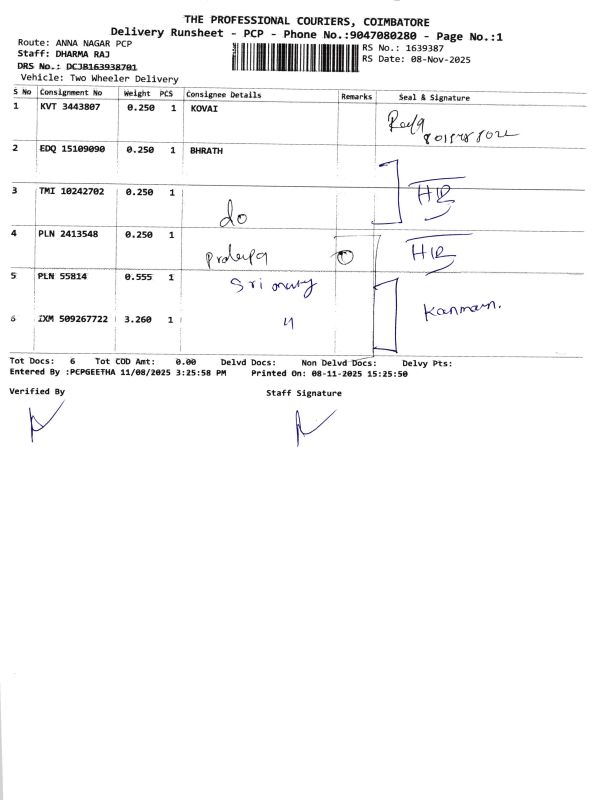 THE PROFESSIONAL COURIERS, COIMBATORE
Delivery Runsheet - PCP - Phone No.:9047080280 - Page No.:1
Route: ANNA NAGAR PCP
Staff: DHARMA RAJ
DRS No.: DCJB163938701
Vehicle: Two Wheeler Delivery
RS No.: 1639387
RS Date: 08-Nov-2025
S No Consignment No Weight PCS Consignee Details Remarks Seal & Signature
1 KVT 3443807 0.250 1 KOVAI
2 EDQ 15109090 0.250 1 BHRATH
3 TMI 10242702 0.250 1 do
4 PLN 2413548 0.250 1
5 PLN 55814 0.555 1 Sri
6 IXM 509267722 3.260 1 "
Tot Docs: 6 Tot COD Amt: 0.00 Delvd Docs: Non Delvd Docs: Delvy Pts:
Entered By :PCPGEETHA 11/08/2025 3:25:58 PM Printed On: 08-11-2025 15:25:50
Verified By Staff Signature